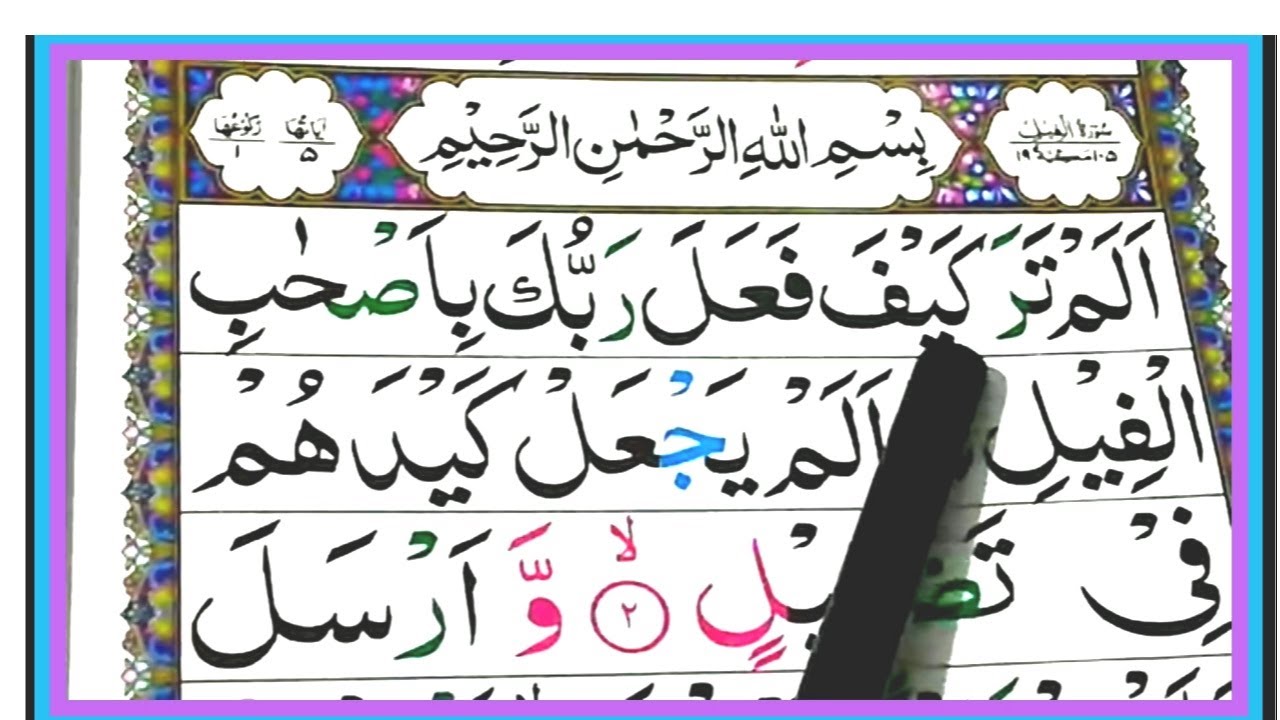 سُوْرَةُ الْفِيْلِ
بِسْمِ اللهِ الرَّحْمٰنِ الرَّحِيْمِ
اٰيَاتُهَا ٥
رُكُوْعُهَا ١
اَلَمْ تَرَ كَيْفَ فَعَلَ رَبُّكَ بِاَصْحٰبِ
الْفِيْلِ اَلَمْ يَجْعَلْ كَيْدَهُمْ
فِيْ وَّ اَرْسَلَ ۙ ٢